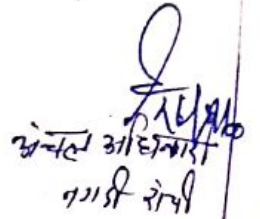 अंचल अधिकारी
नगड़ी राँची